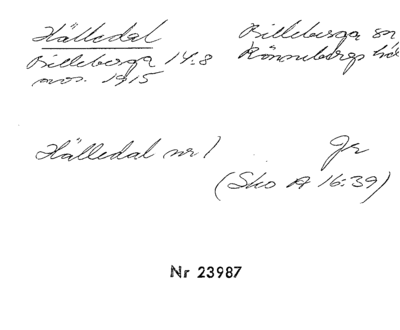 Hälledal Billeberga sn
Billeberga 14:8 Rönnebergs hd
nov. 1915
Hälledal nr 1 Jr
(Sko A 16:39)
Nr 23987